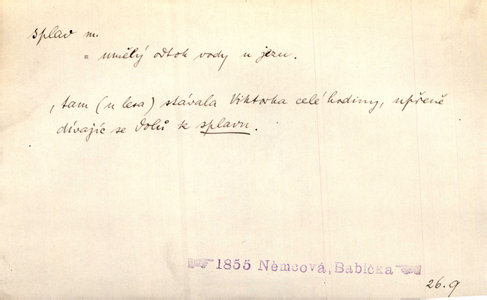 splav m.
= umělý odtok vody u jezu.
, tam (u lesa) stávala Viktorka celé hodiny, upřeně
dívajíc se dolů k splavu.
1855 Němcová, Babička
26.9